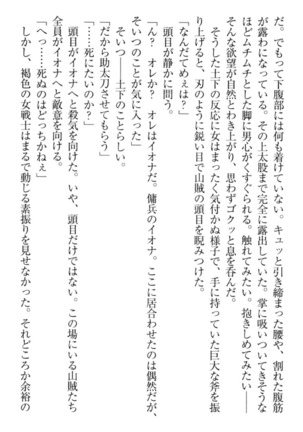 だ。でもって下腹部には何も着けていない。キュッと引き締まった腰や、割れた腹筋
が露わになっている。その上太股まで完全に露出していた。掌に吸いついてきそうな
ほどムチムチとした脚に男心がくすぐられる。触れてみたい。抱きしめてみたい――
そんな欲望が自然とわき上がり、思わずゴクッと息を呑んだ。
そうした土下の反応に女はまったく気付かぬ様子で、手に持っていた巨大な斧を振
り上げると、刃のように鋭い目で山賊の頭目を睨みつけた。
「なんだてめぇは？」
頭目が静かに問う。
「ん？　オレか？　オレはイオナ。傭兵のイオナ。ここに居合わせたのは偶然だが、
そいつのことが気に入った」
そいつ――土下のことらしい。
「だから助太刀させてもらう」
「……死にたいのか？」
頭目がイオナへと殺気を向けた。いや、頭目だけではない。この場にいる山賊たち
全員がイオナへと敵意を向ける。
「へっ……死ぬのはどっちかねぇ」
しかし、褐色の女戦士はまるで動じる素振りを見せなかった。それどころか余裕の